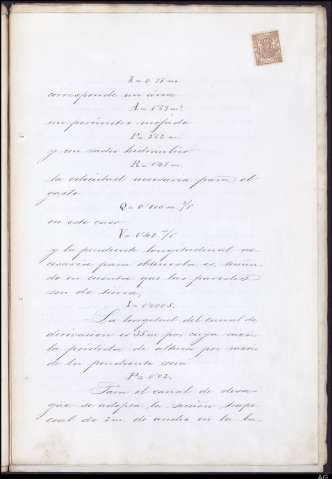 h = 0'75 m
corresponde un area
A = 1'59 m²
un perimetro mojado
P = 3'32 m
y un radio hidraulico
R = 0'47 m
la velocidad necesaria para el
gasto
Q = 0'800 m³/1"
en este caso
V = 0'50 m/1"
y la pendiente longitudinal ne-
cesaria para obtenerla es, tenien-
do en cuenta que las paredes
son de tierra,
I = 0'0005.
La longitud del canal de
derivacion es 35 m por cuya razon
la perdida de altura por razon
de la pendiente será
P = 0'02.
Para el canal de desa-
güe se adopta la sección trape-
cial de 2 m de ancho en la ba-